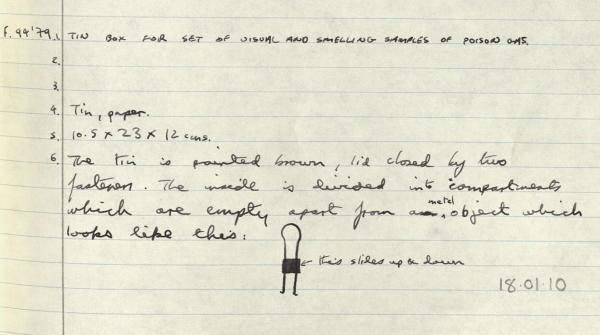 F.99'79. 1. TIN BOX FOR SET OF VISUAL AND SMELLING SAMPLES OF POISON GAS.
2.
3.
4. Tin, paper.
5. 10.5 x 23 x 12 cms.
6. The tin is painted brown, lid closed by two
fasteners. The inside is divided into compartments
which are empty apart from a metal object which
looks like this:
← this slides up & down
18.01.10